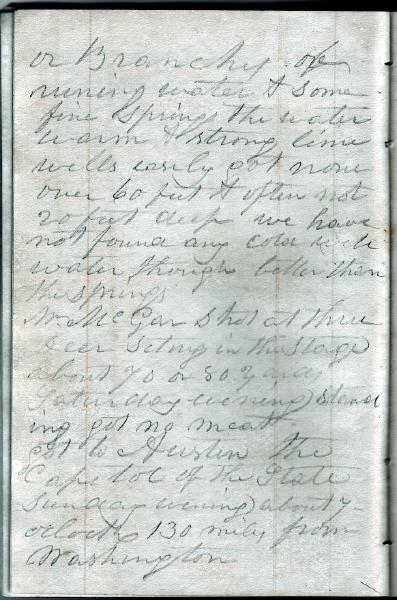 or Branchy of
runing water & some
fine springs the water
warm & strong lime
wells easily got none
over 60 feet & often not
20 feet deep we have
not found any cold well
water though better than
the springs
Mr McGar shot at three
deer seting in the stage
about 70 or 80 yards
Saturday evening stand
ing got no meat
got to Austin the
Capitol of the State
Sunday evening about 7
oclock 130 miles from
Washington